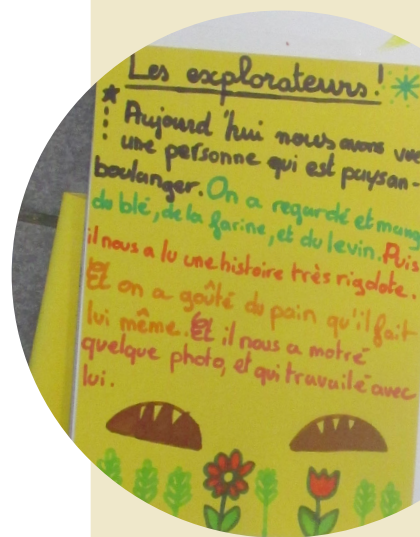 Les explorateurs!
Aujourd'hui nous avons vu
une personne qui est paysan-
boulanger. On a regardé et mang
du blé, de la farine, et du levin. Puis
il nous a lu une histoire très rigolote.
Et on a goûté du pain qu'il fait
lui même. Et il nous a motré
quelque photo, et qui travaile avec
lui.